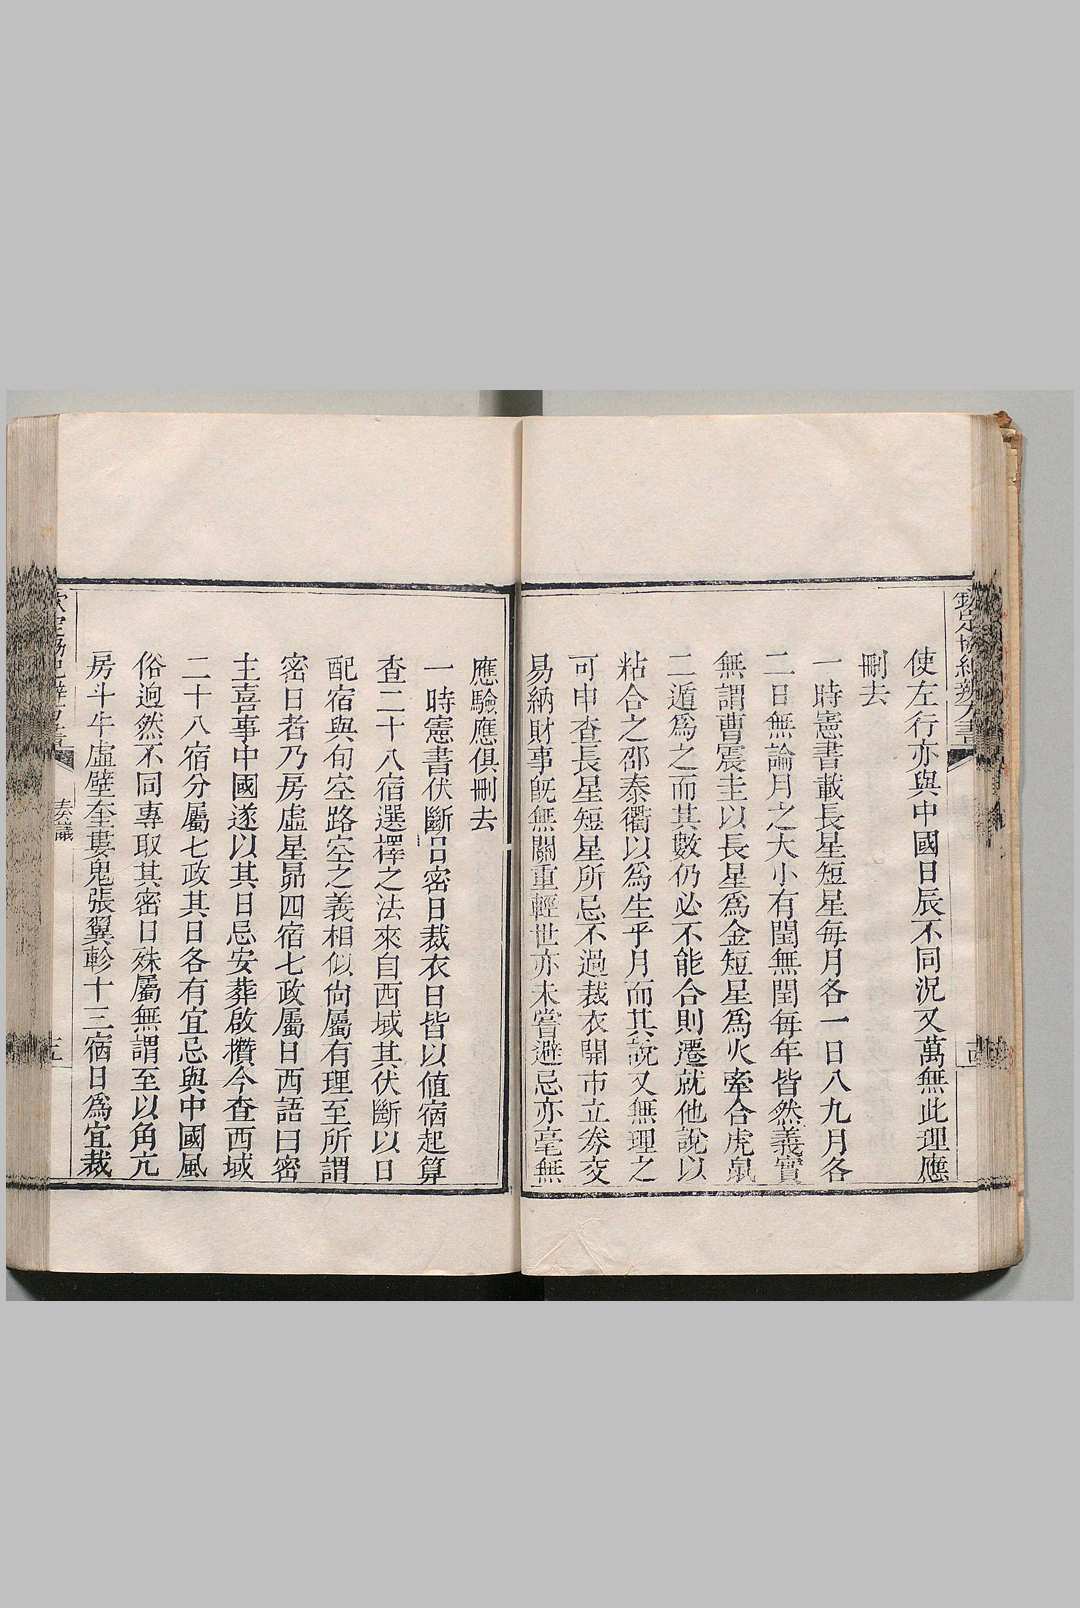 使左行亦與中國日辰不同況又萬無此理應
刪去
一時憲書載長星短星每月各一日八九月各
二日無論月之大小有閏無閏每年皆然義實
無謂曹震圭以長星爲金短星爲火牽合虎鼠
二遁爲之而其數仍必不能合則遷就他說以
粘合之邵泰衢以爲生乎月而其說又無理之
可申查長星短星所忌不過裁衣開市立券交
易納財事既無關重輕世亦未嘗避忌亦毫無
應驗應俱刪去
一時憲書伏斷日密日裁衣日皆以值宿起算
查二十八宿選擇之法來自西域其伏斷以日
配宿與旬空路空之義相似尙屬有理至所謂
密日者乃房虛星昴四宿七政屬日西語曰密
主喜事中國遂以其日忌安葬啟攢今查西域
二十八宿分屬七政其日各有宜忌與中國風
俗迥然不同專取其密日殊屬無謂至以角亢
房斗牛虛壁奎婁鬼張翼軫十三宿日爲宜裁
奏議